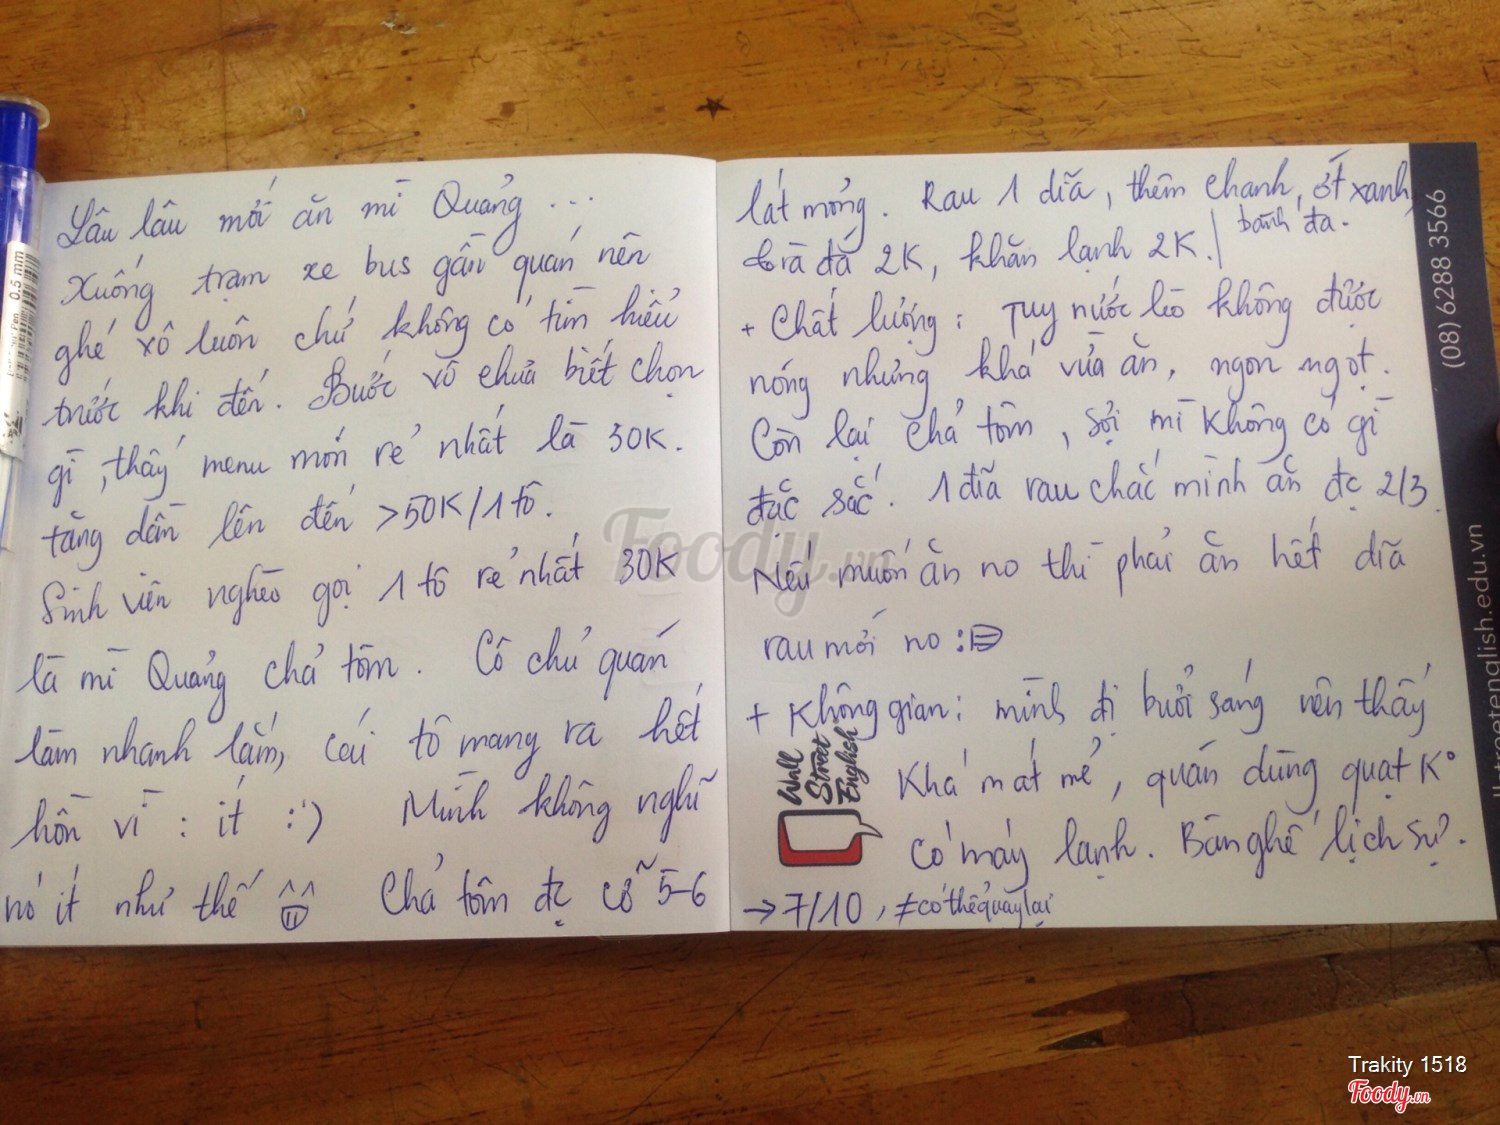 Lâu lâu mới ăn mì Quảng...
Xuống trạm xe bus gần quán nên
ghé vô luôn chứ không có tìm hiểu
trước khi đến. Bước vô chưa biết chọn
gì, thấy menu món rẻ nhất là 30K.
tăng dần lên đến >50K/1 tô.
Sinh viên nghèo gọi 1 tô rẻ nhất 30K
là mì Quảng chả tôm. Cô chủ quán
làm nhanh lắm, cái tô mang ra hết
hồn vì : ít :') Mình không nghĩ
nó ít như thế Chả tôm đc cỡ 5-6
lát mỏng. Rau 1 dĩa, thêm chanh, ớt xanh,
bánh đa.
trà đá 2K, khăn lạnh 2K.
+ Chất lượng: Tuy nước lèo không được
nóng nhưng khá vừa ăn, ngon ngọt.
Còn lại chả tôm, sợi mì không có gì
đặc sắc. 1 đĩa rau chắc mình ăn đc 2/3.
Nếu muốn ăn no thì phải ăn hết dĩa
rau mới no :))
+ Không gian: mình đi buổi sáng nên thấy
Khá mát mẻ, quán dùng quạt K°
có máy lạnh. Bàn ghế lịch sự.
→ 7/10, #cóthểquaylại
Wall
Street
English
(08) 6288 3566
llstreetenglish.edu.vn
0.5 mm
Foody.vn
Trakity 1518
Foody.vn